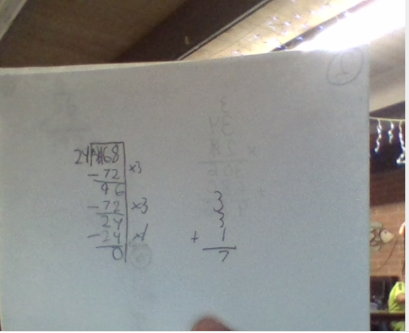 24 168
-72 x3
96
-72 x3
24
-24 x1
0
3
3
+ 1
7